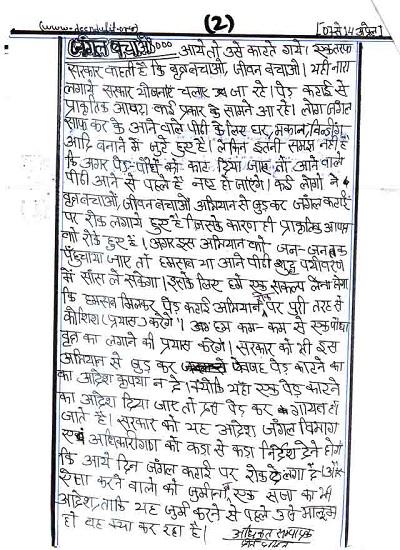 (www.deendulit.org)
(2)
जंगल बचाओ.... आये तो उसे काटते गये। एक तरफ
सरकार चाहती है कि वृक्ष बचाओ, जीवन बचाओ। यही नारा
लगाये सरकार योजनाएं चलाए जा रहे। पेड़ कटाई से
प्राकृतिक आपदा कई प्रकार के सामने आ रहे। लोग जंगल
साफ कर के आने वाले पीढी के लिए घर, मकान, बिल्डींग
आदि बनाने में जुटे हुए है। लेकिन इतनी समझ नही है
कि अगर पेड़-पौधों को काट दिया जाए तो आने वाले
पीढी आने से पहले ही नष्ट हो जाएंगे। कई लोगों ने
वृक्ष बचाओ, जीवन बचाओ अभियान से जुड़ कर जंगल कटाई
पर रोक लगाये हुए है। जिसके कारण ही प्राकृतिक आपदा
को रोके हुए है। अगर इस अभियान को जन-जन तक
पहुँचाया जाए तो हम सब या आने पीढी शुद्ध पर्यावरण
में सांस ले सकेगा। इसके लिए हमें एक संकल्प लेना होगा
कि हम सब मिलकर पेड़ कटाई अभियान पर पुरी तरह से
कोशिश (प्रयास) करेंगे। हम कम-कम से एक पौधा
वृक्ष का लगाने की प्रयास करेंगे। सरकार को भी इस
अभियान से जुड़ कर पेड़ काटने का
का आदेश कृपया न दे। क्योंकि यहाँ एक पेड़ काटने
का आदेश दिया जाए तो पेड़ कर गायब हो
जाते है। सरकार को यह आदेश जंगल विभाग
एवं अधिकारीगण को कड़ा से कड़ा निर्देश देने होंगे
कि आये दिन जंगल कटाई पर रोक लगा दें। और
ऐसा करने वालो को जुर्माना, एक सजा का भी
आदेश, ताकि यह जुर्म करने से पहले उसे मालूम
हो वह क्या कर रहा है।